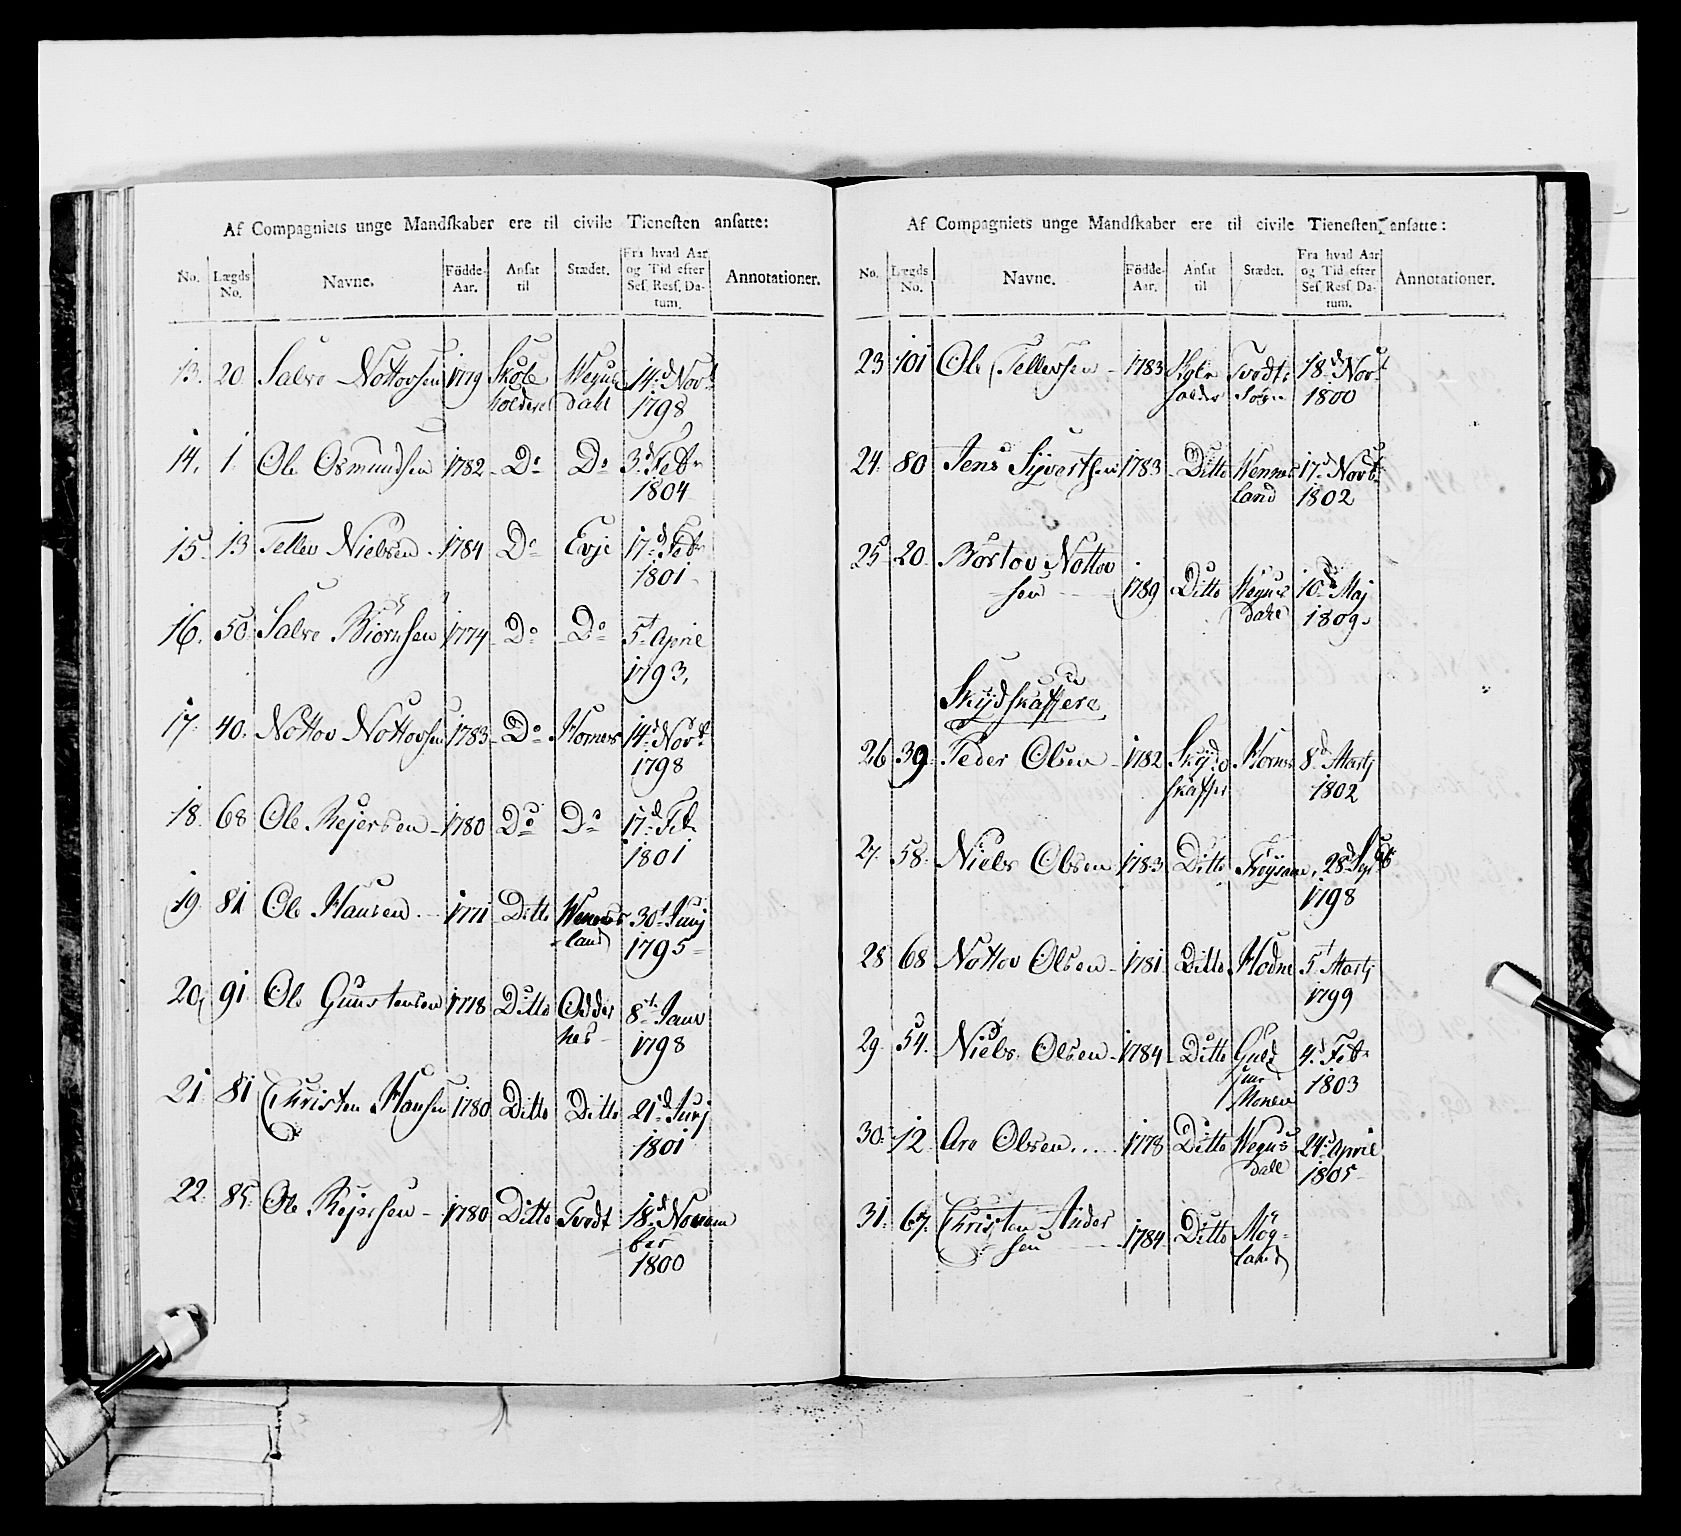 Af Compagniets unge Mandskaber ere til civile Tienesten ansatte:
No. Lægds No. Navne. Födde-Aar. Ansat til Stædet. Fra hvad Aar og Tid efter Ses. Res. Datum. Annotationer.
13. 20. Salve Nottovsen 1779 Skole Wegus 14.d Novt
holdere dahl 1798
14. 1. Ole Osmundsen 1782 Do Do 3.d Febr
1804
15. 13 Tellev Nielsen 1784 Do Evje 17.d Febr
1801
16. 50. Salve Biørnsen 1774 Do Do 5t April
1793.
17. 40. Nottov Nottovsen 1783 Do Hornes 14.d Novr
1798
18. 68 Ole Rejersen 1780 Do Do 17.d Feb.
1801
19. 81 Ole Hansen 1771 Ditto Wennes 30t Junj
land 1795
20. 91 Ole Gunstensen 1778 Ditto Odder 8t Janv
nes 1798
21. 81 Christen Hansen 1780 Ditto Ditto 21.d Junj
1801
22. 85. Ole Rejersen 1780 Ditto Tvedt 18.d Novem
ber
1800
Af Compagniets unge Mandskaber ere til civile Tienesten ansatte:
No. Lægds No. Navne. Födde-Aar. Ansat til Stædet. Fra hvad Aar og Tid efter Ses. Res. Datum. Annotationer.
23 101 Ole Tellevsen 1783 Skole Tvedt 18.d Novt
holder Sogn 1800
24. 80 Jens Syvertsen 1783 Ditto Wennes 17.d Novb.
land 1802
25 20. Børtov Nottov
sen 1789 Ditto Wegus 10.d Maj
dahl 1809.
Skydskaffere
26 39. Peder Olsen 1782 Skyd Hornes 8.d Martj
skaffer 1802
27. 58. Niels Olsen 1783 Ditto 28.d Sept
1798
28 68 Nottov Olsen 1781 Ditto Hodne 5t Martj
1799
29. 54. Niels Olsen 1784 Ditto 4.d Feb.
Monen 1803
30. 12. Are Olsen 1778 Ditto Wegus 24.d April
dall 1805
31. 67. Christen Ander
sen 1784 Ditto Møg-
land